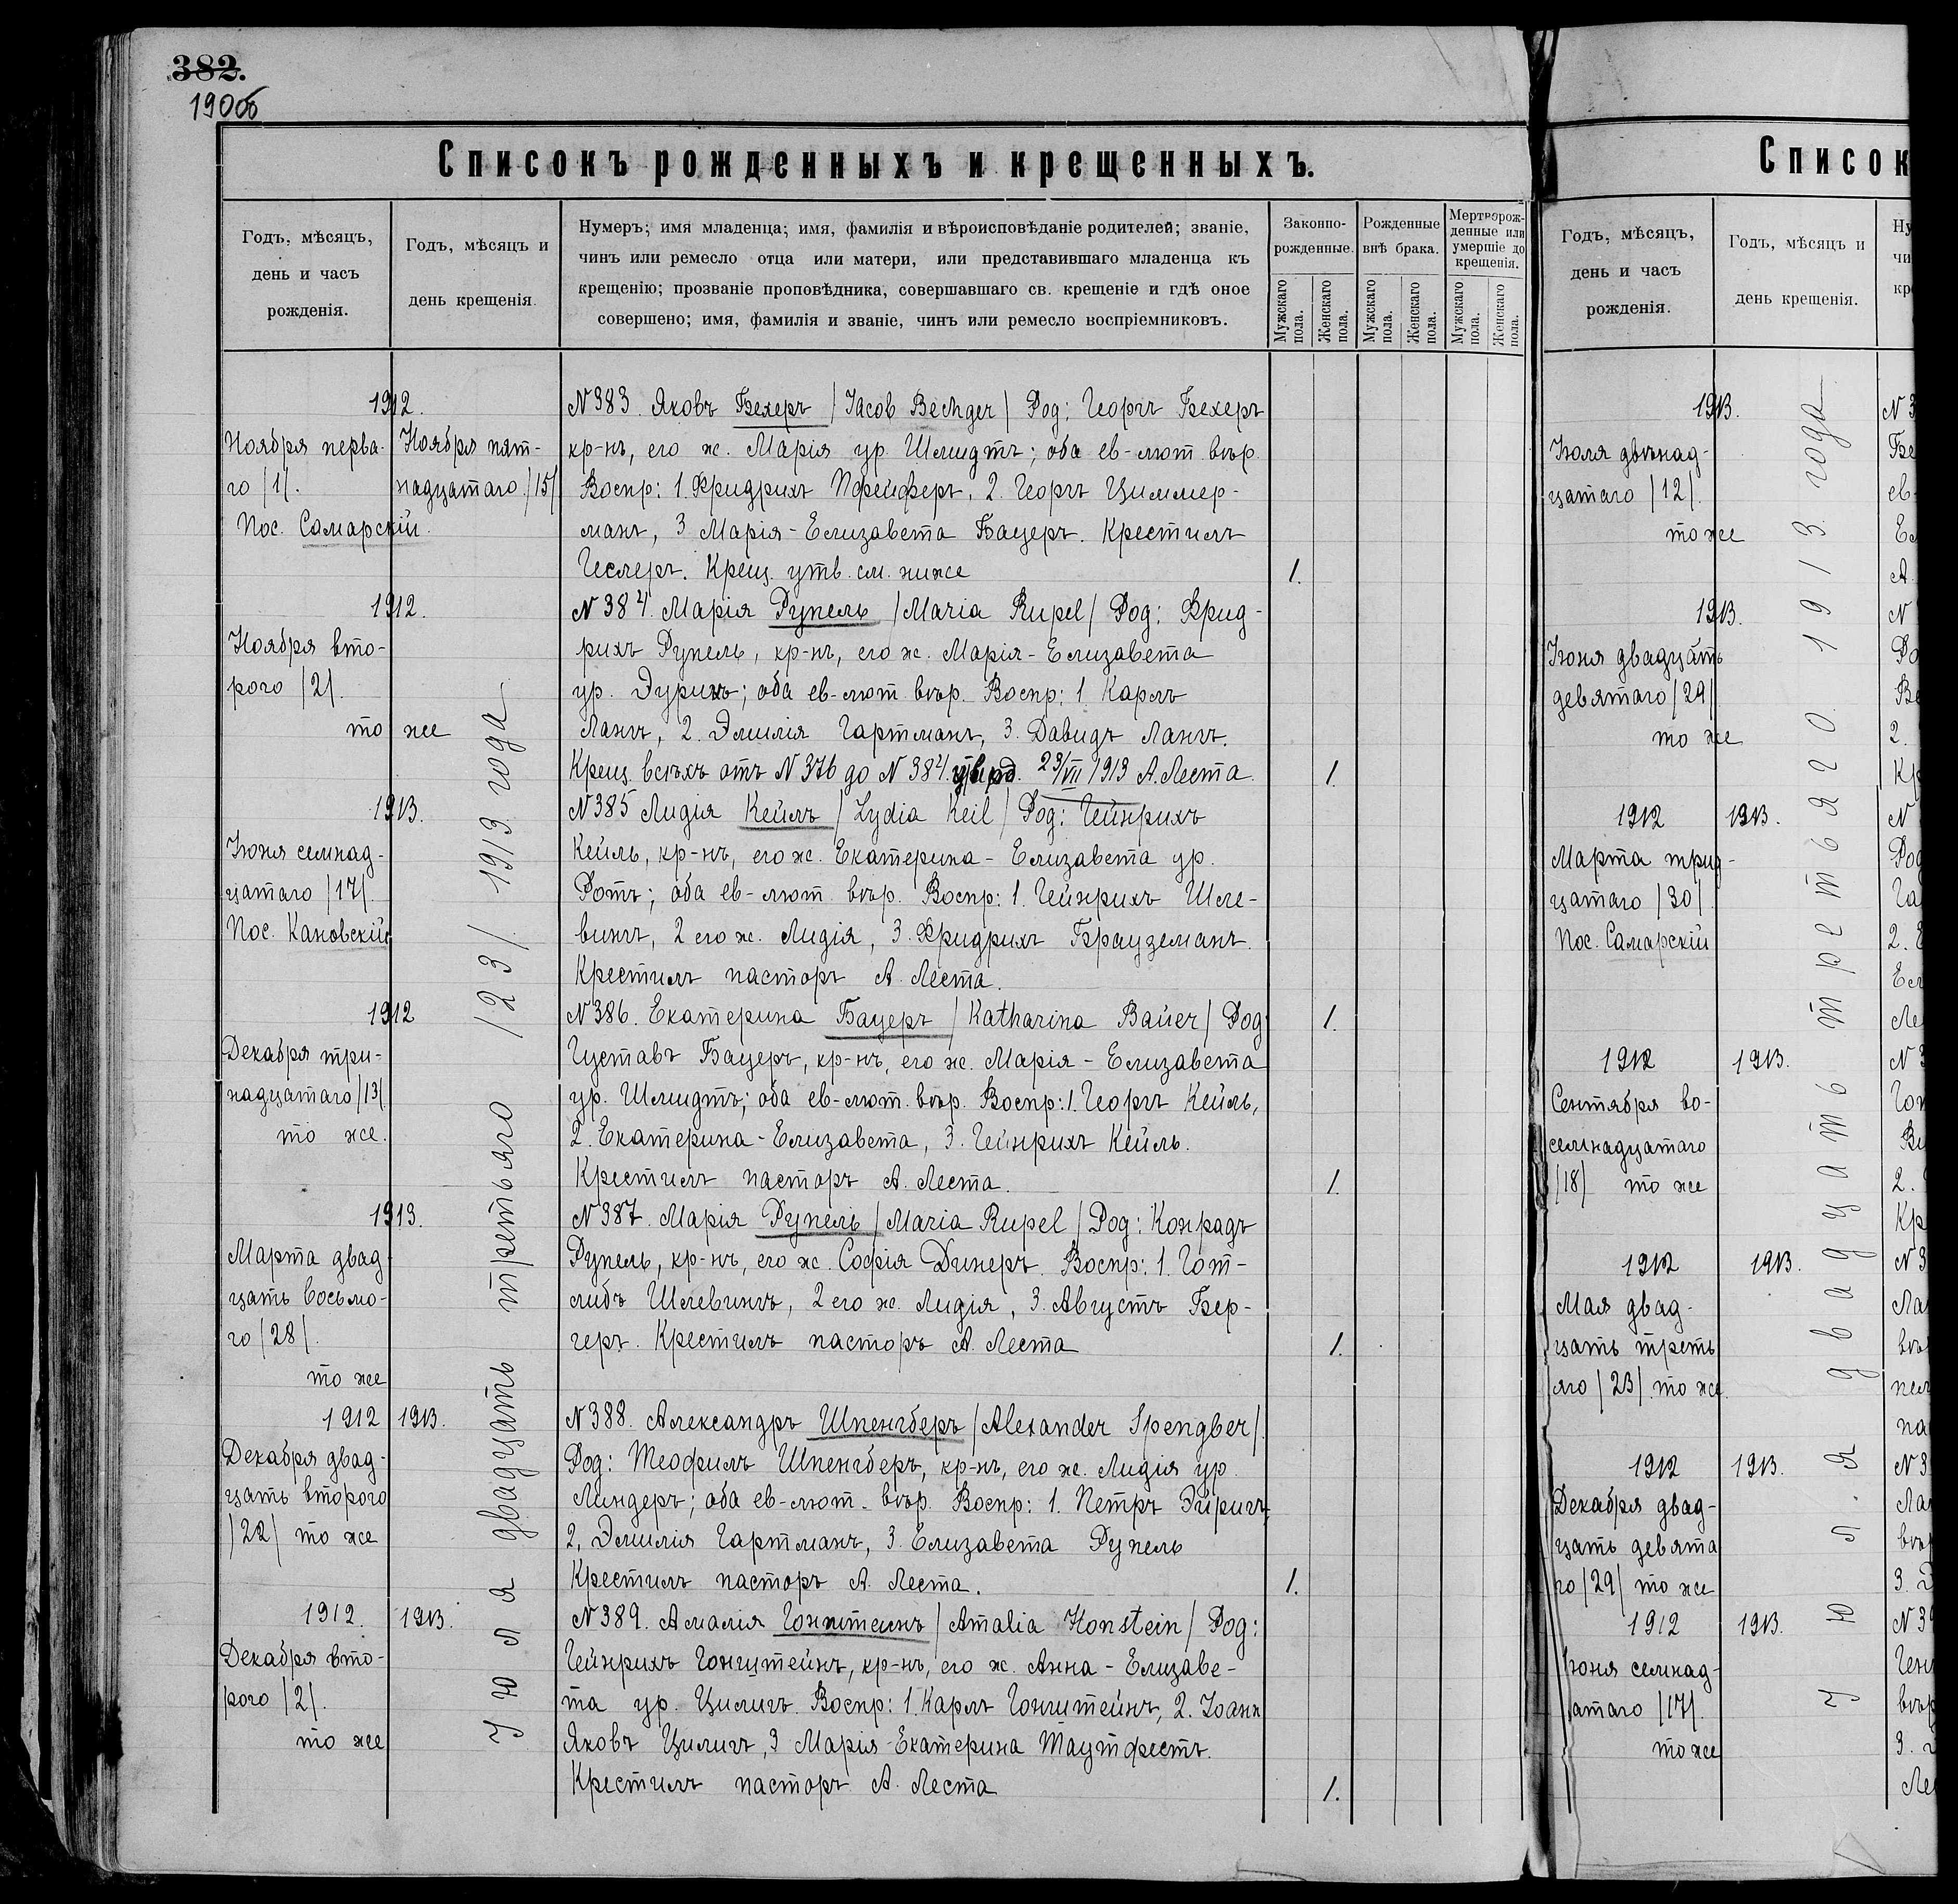 382.
190об
Списокъ рожденныхъ и крещенныхъ.
Годъ, мѣсяцъ,
день и часъ
рожденія.
Годъ, мѣсяцъ и
день крещенія.
Нумеръ; имя младенца; имя, фамилія и вѣроисповѣданіе родителей; званіе,
чинъ или ремесло отца или матери, или представившаго младенца къ
крещенію; прозваніе проповѣдника, совершавшаго св. крещеніе и гдѣ оное
совершено; имя, фамилія и званіе, чинъ или ремесло воспріемниковъ.
Законно-
рожденные.
Рожденные
внѣ брака.
Мертворож-
денные или
умершіе до
крещенія.
Мужскаго пола.
Женскаго пола.
Мужскаго пола.
Женскаго пола.
Мужскаго пола.
Женскаго пола.
1912.
Ноября перва-
го /1/.
Пос. Самарскій.
Ноября пят-
надцатаго /15/
N 383. Яковъ Бехеръ /Jacob Bechger/ Род: Георгъ Бехеръ
кр-нъ, его ж. Марія ур. Шмидтъ; оба ев-лют. вѣр.
Воспр: 1. Фридрихъ Пфейферъ, 2. Георгъ Циммер-
манъ, 3 Марія-Елизавета Бауеръ. Крестилъ
Геслеръ. Крещ. утв. см. ниже
1.
1912.
Ноября вто-
рого /2/.
то же
N 384. Марія Рупель /Maria Rupel/ Род: Фрид-
рихъ Рупель, кр-нъ, его ж. Марія-Елизавета
ур. Эурихъ; оба ев-лют. вѣр. Воспр: 1 Карлъ
Лангъ, 2. Эмилія Гартманъ, 3. Давидъ Лангъ.
Крещ. всѣхъ отъ N 376 до N 384. утврд. 23/VII 1913 А. Леста.
1.
1913.
Іюня семнад-
цатаго /17/.
Пос. Кановскій
N 385 Лидія Кейль /Lydia Keil/ Род: Гейнрихъ
Кейль, кр-нъ, его ж. Екатерина-Елизавета ур.
Ротъ; оба ев-лют. вѣр. Воспр: 1. Гейнрихъ Шле-
вингъ, 2 его ж. Лидія, 3. Фридрихъ Брауземанъ.
Крестилъ пасторъ А. Леста.
1.
1912
Декабря три-
надцатаго /13/
то же.
N 386. Екатерина Бауеръ /Katharina Bauer/ Род:
Густавъ Бауеръ, кр-нъ, его ж. Марія-Елизавета
ур. Шмидтъ; оба ев-лют. вѣр. Воспр: 1. Георгъ Кейль,
2. Екатерина-Елизавета, 3. Гейнрихъ Кейль.
Крестилъ пасторъ А. Леста.
1.
1913.
Марта двад-
цать восьмо-
го /28/.
то же
N 387. Марія Рупель /Maria Rupel/ Род: Конрадъ
Рупель, кр-нъ, его ж. Софія Динеръ. Воспр: 1. Гот-
либъ Шлевингъ, 2 его ж. Лидія, 3. Августъ Бер-
геръ. Крестилъ пасторъ А. Леста
1.
1912
1913.
Декабря двад-
цать второго
/22/ то же
N 388. Александръ Шпенгберъ /Alexander Spengber/.
Род: Теофилъ Шпенгберъ, кр-нъ, его ж. Лидія ур.
Линдеръ; оба ев-лют. вѣр. Воспр: 1. Петръ Эйригъ,
2. Эмилія Гартманъ, 3. Елизавета Рупель
Крестилъ пасторъ А. Леста.
1.
1912.
1913.
Декабря вто-
рого /2/.
то же
N 389. Амалія Гонштейнъ /Amalia Honstein/ Род:
Гейнрихъ Гонштейнъ, кр-нъ, его ж. Анна-Елизаве-
та ур. Цилигъ. Воспр: 1. Карлъ Гонштейнъ, 2. Іоанн
Яковъ Цилигъ, 3 Марія-Екатерина Таутфестъ.
Крестилъ пасторъ А. Леста
1.
Іюля двадцать третьяго /23/ 1913 года
Список
Годъ, мѣсяцъ,
день и часъ
рожденія.
Годъ, мѣсяцъ и
день крещенія.
Ну
чи
кр
1913.
Іюля двѣнад-
цатаго /12/.
то же
1913.
Іюня двадцать
девятаго /29/
то же
1912
1913.
Марта трид-
цатаго /30/
Пос. Самарскій
1912
1913.
Сентября во-
семнадцатаго
/18/ то же
1912
1913.
Мая двад-
цать треть
яго /23/ то же.
1912
1913.
Декабря двад-
цать девята
го /29/ то же
1912
1913.
Іюня семнад-
цатаго /17/.
то же
Іюля двадцать третьяго 1913 года